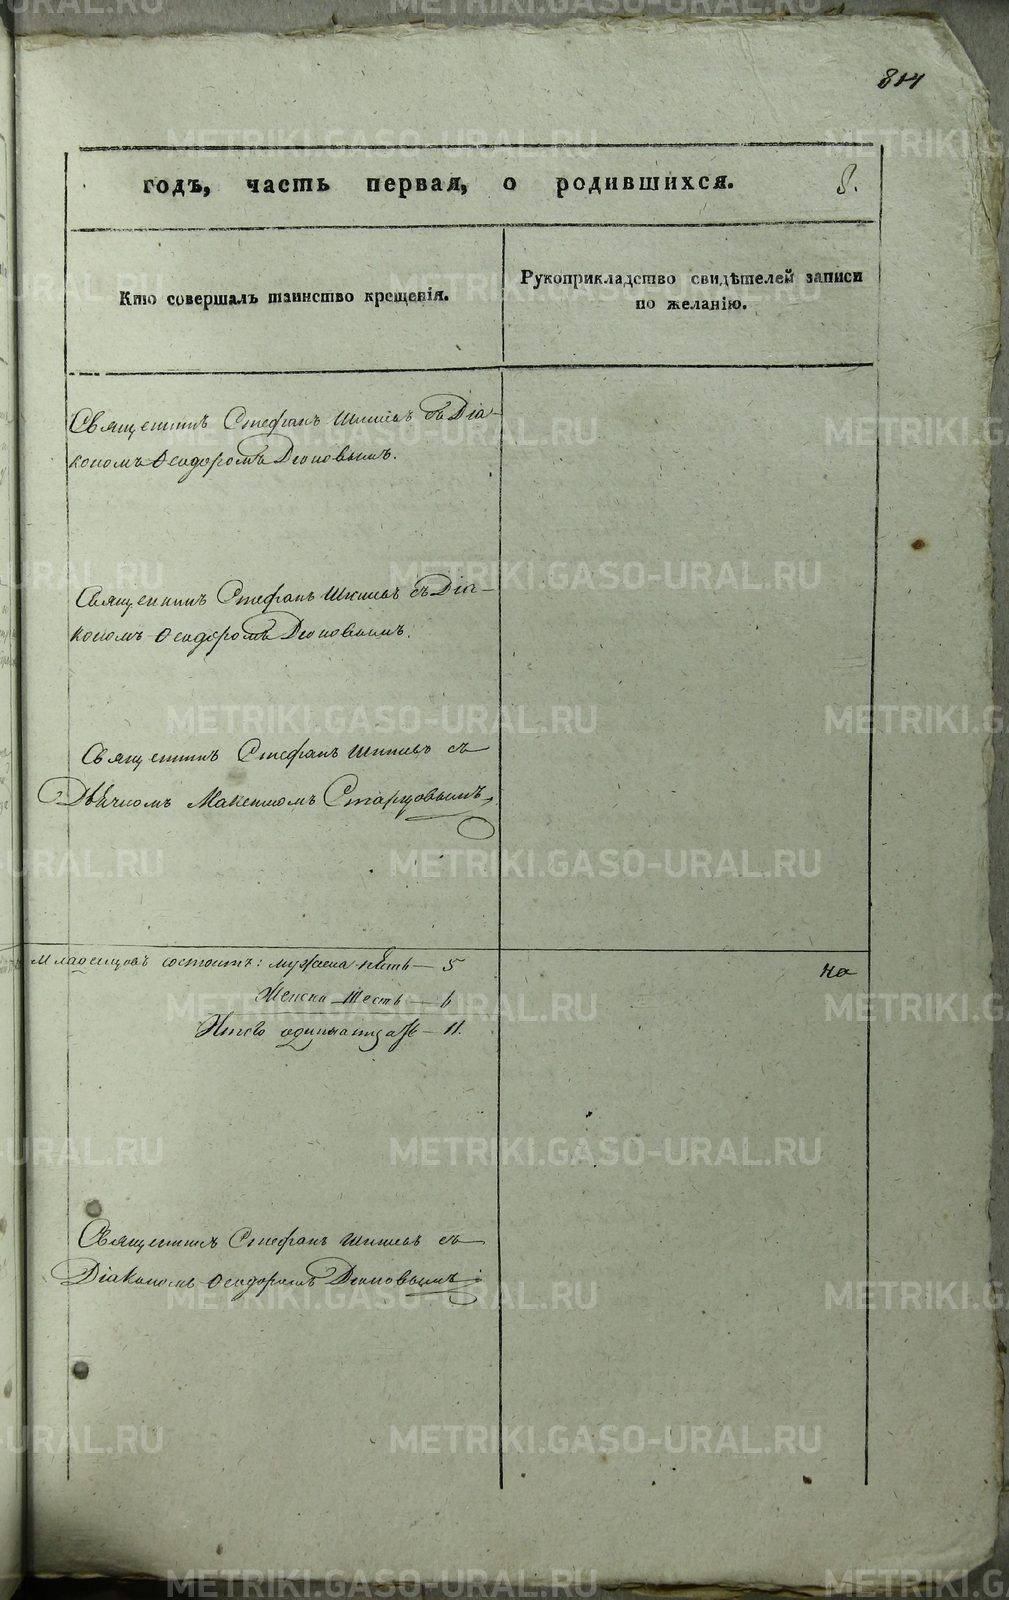 814
годъ, часть первая, о родившихся. 8.
Кто совершалъ таинство крещенія.
Рукоприкладство свидѣтелей записи
по желанію.
Священникъ Стефанъ съ Діа-
кономъ Ѳеодоромъ
Священникъ Стефанъ съ Діа-
кономъ Ѳеодоромъ
Священникъ Стефанъ съ
Дьячкомъ Максимомъ Старцовымъ
Младенцовъ состоитъ: мужеска пять — 5
на
Женска шесть — 6
Итого одиннатцать — 11.
Священникъ Стефанъ съ
Діакономъ Ѳеодоромъ
METRIKI.GASO-URAL.RU